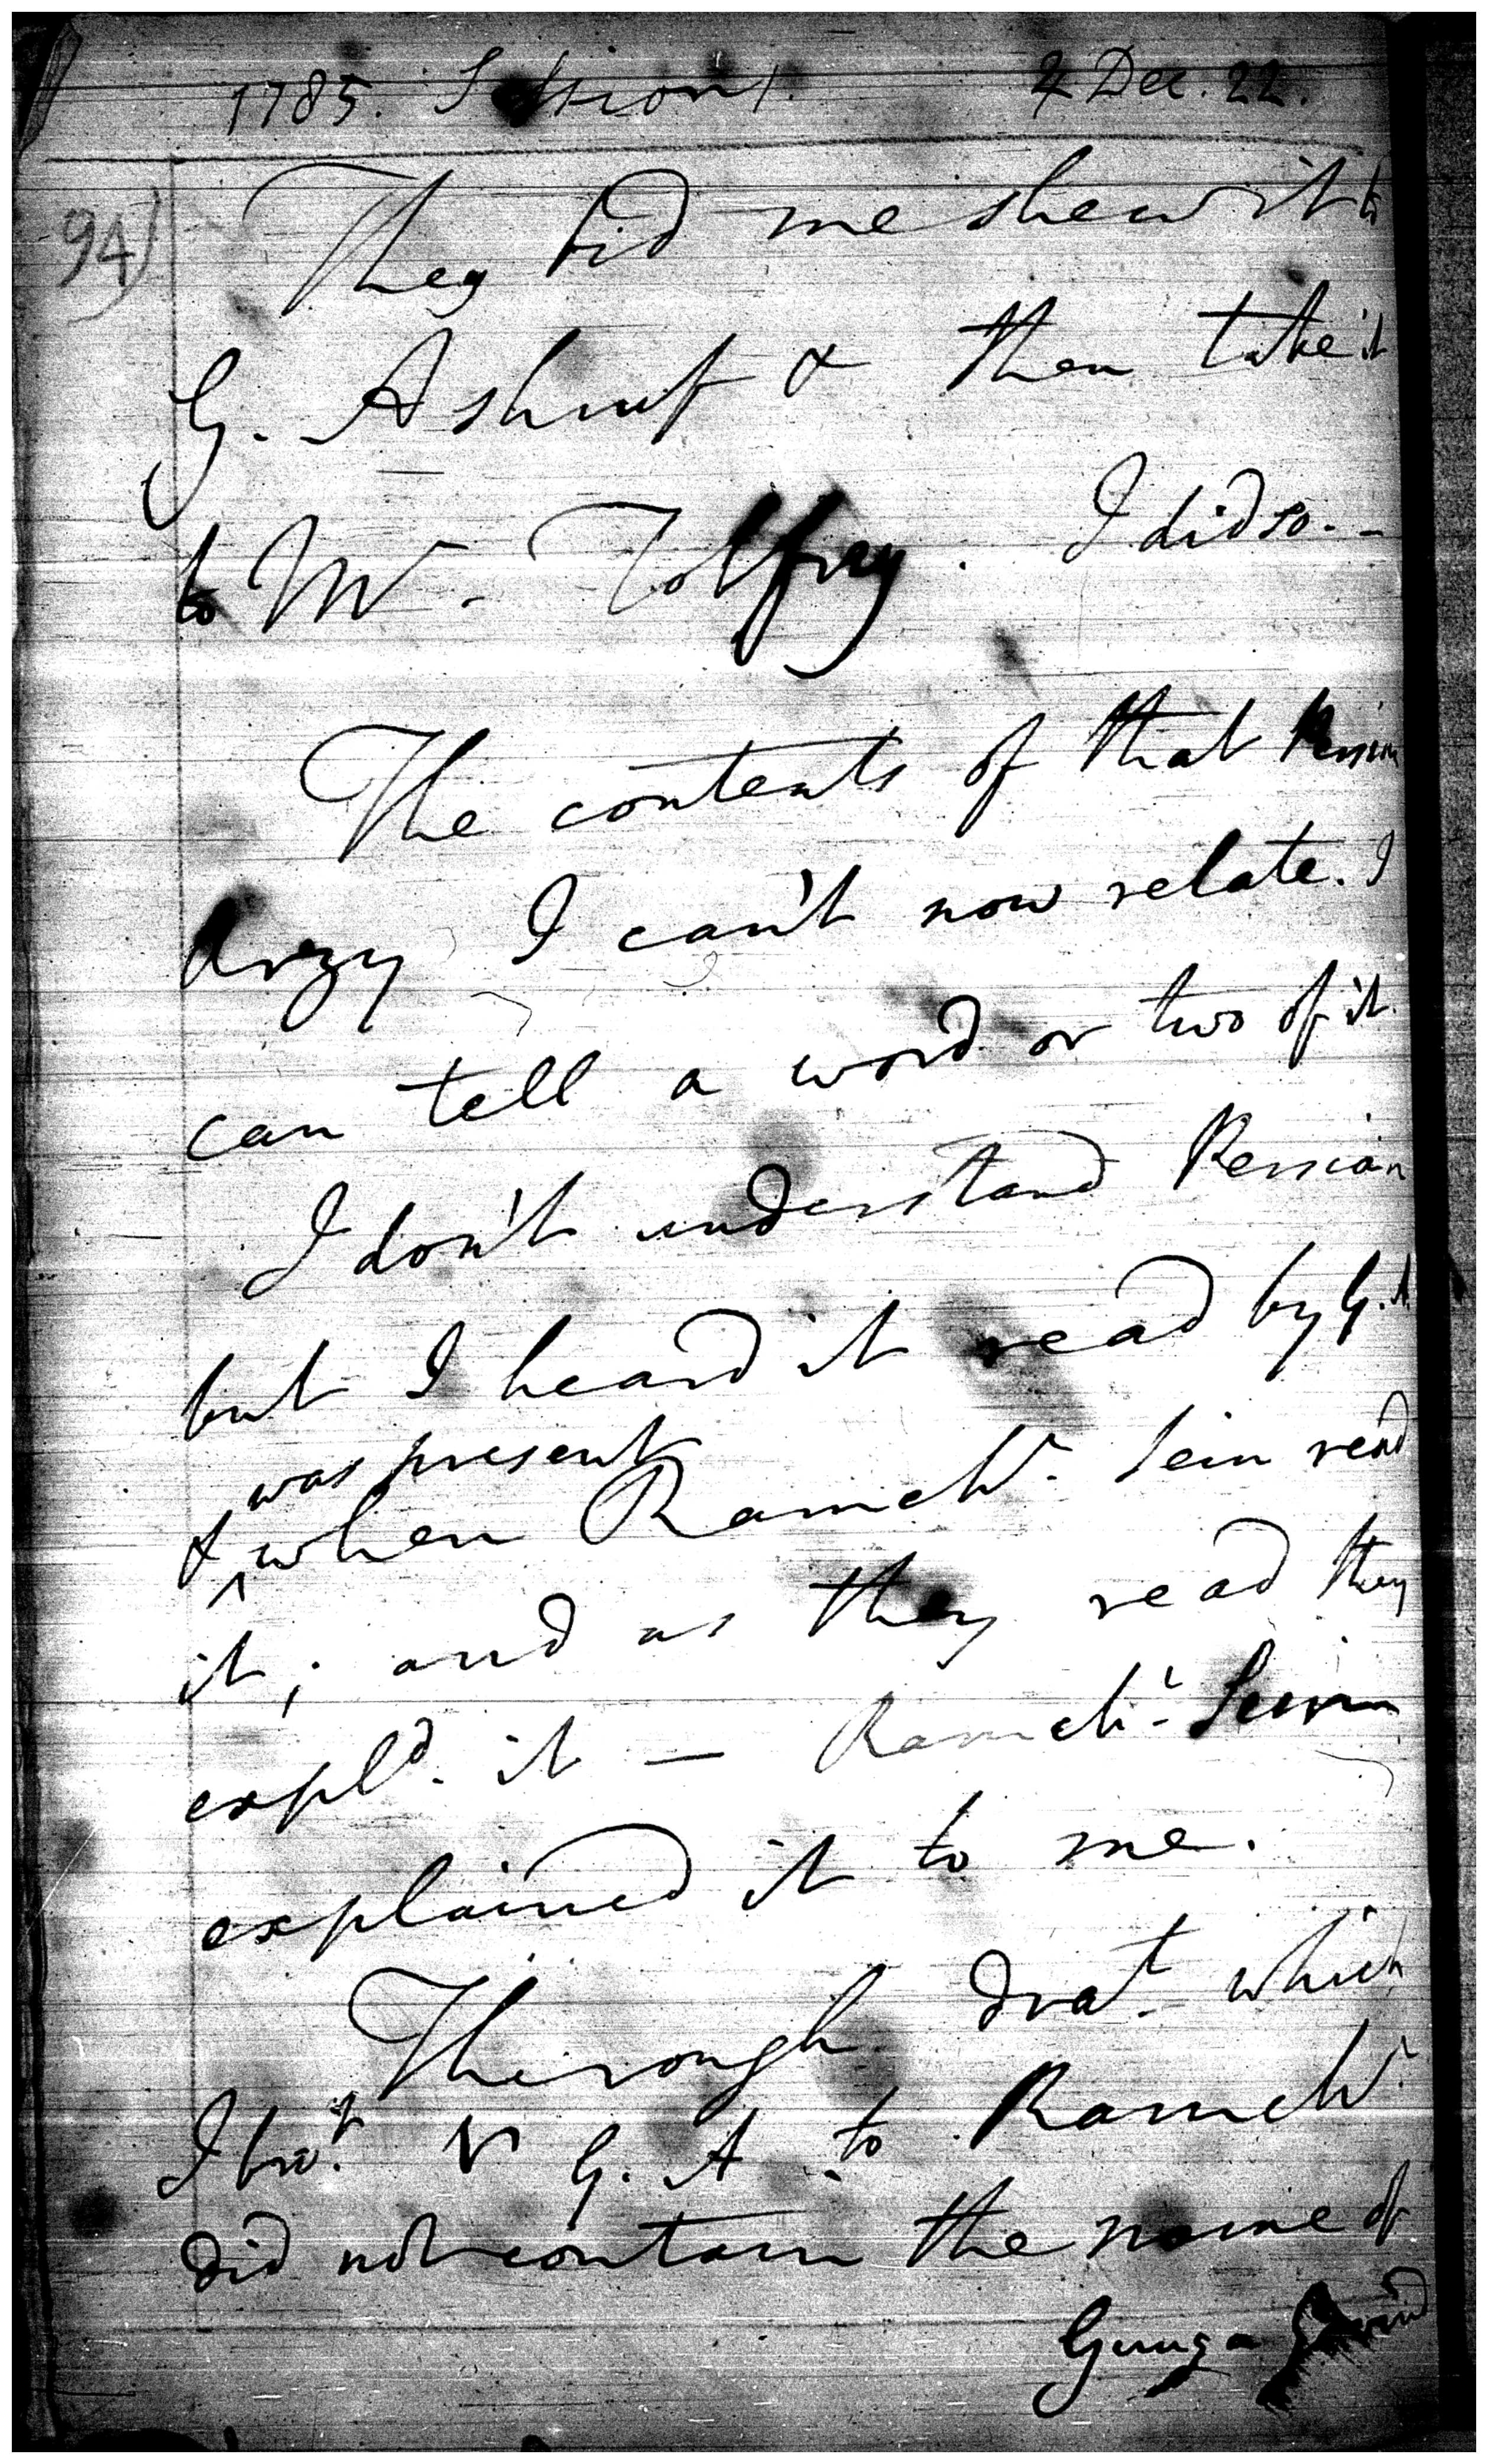 1785. Sessions. 4 Dec. 22.
94)
They bid me shew it to
G. Ashruf & then take it
to Mr. Tolfrey. I did so. -
The contents of that Persian
Arzy I can't now relate. I
can tell a word or two of it.
I don't understand Persian
but I heard it read by G. A.
was present
& ^ when Ramchr. Sein read
it; and as they read they
expld. it — Ramchr. Sein
explained it to me.
The rough drat. which
I brot. G. A. to Ramchr.
did not contain the name of
Gunga